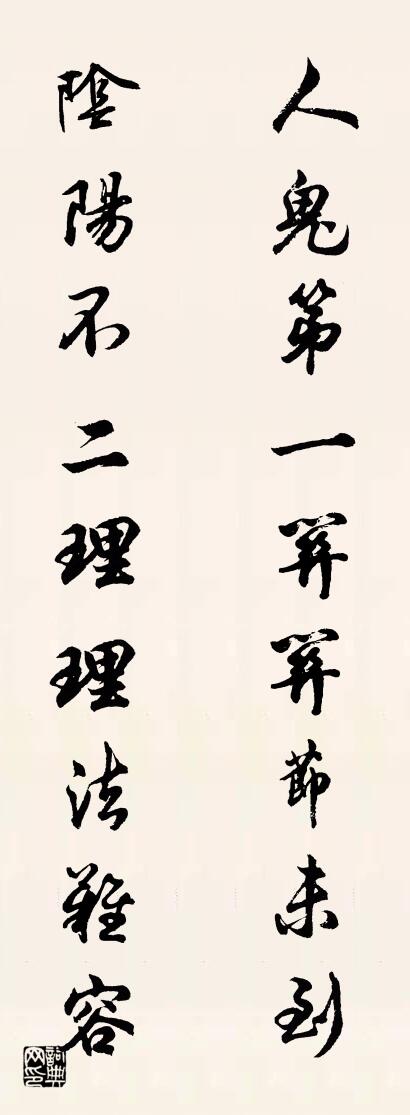 人鬼第一關關節未到
陰陽不二理理法難容
詞典网印